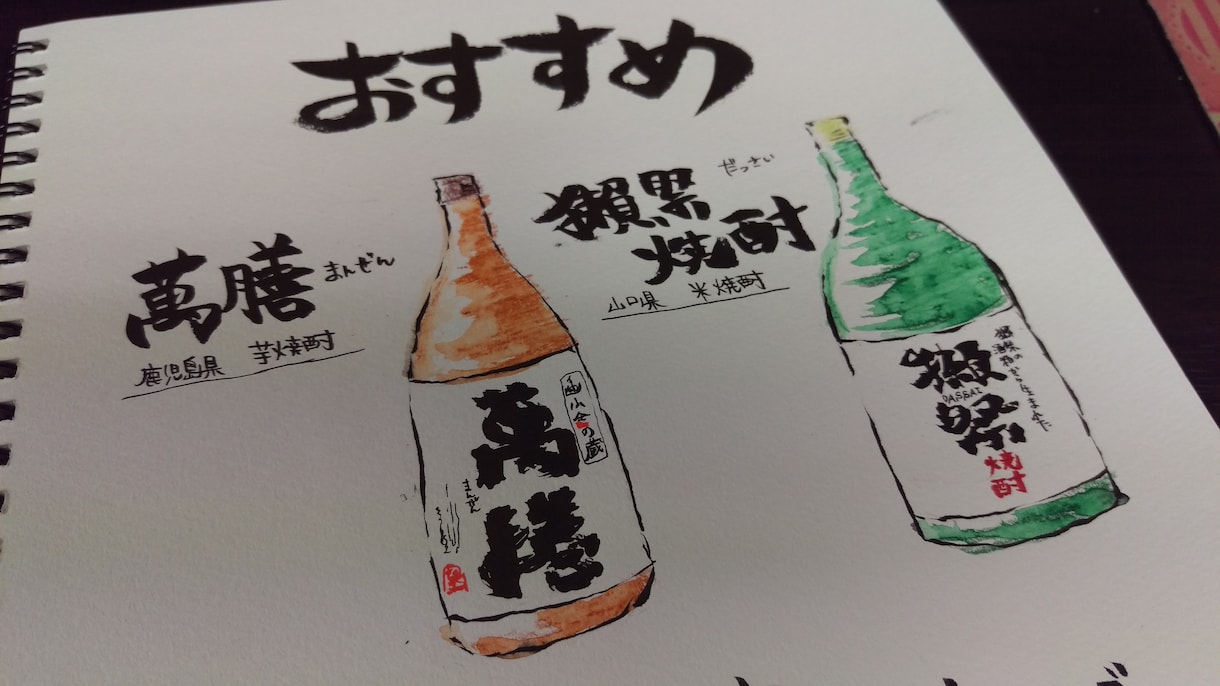 おすすめ
萬膳
まんぜん
鹿児島県 芋焼酎
獺祭
だっさい
焼酎
山口県 米焼酎
の蔵
萬膳
まんぜん
獺祭の
酒粕から生まれた
獺祭
DASSAI
焼酎